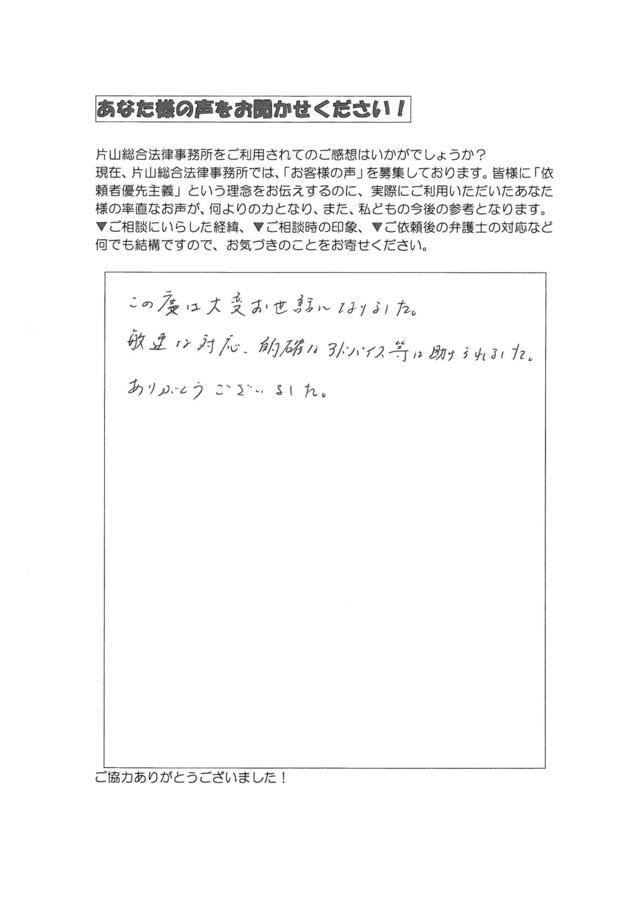 あなた様の声をお聞かせください！
片山総合法律事務所をご利用されてのご感想はいかがでしょうか？
現在、片山総合法律事務所では、「お客様の声」を募集しております。皆様に「依
頼者優先主義」という理念をお伝えするのに、実際にご利用いただいたあなた
様の率直なお声が、何よりの力となり、また、私どもの今後の参考となります。
▼ご相談にいらした経緯、▼ご相談時の印象、▼ご依頼後の弁護士の対応など
何でも結構ですので、お気づきのことをお寄せください。
この度は大変お世話になりました。
敏速な対応、的確なアドバイス等に助けられました。
ありがとうございました。
ご協力ありがとうございました！